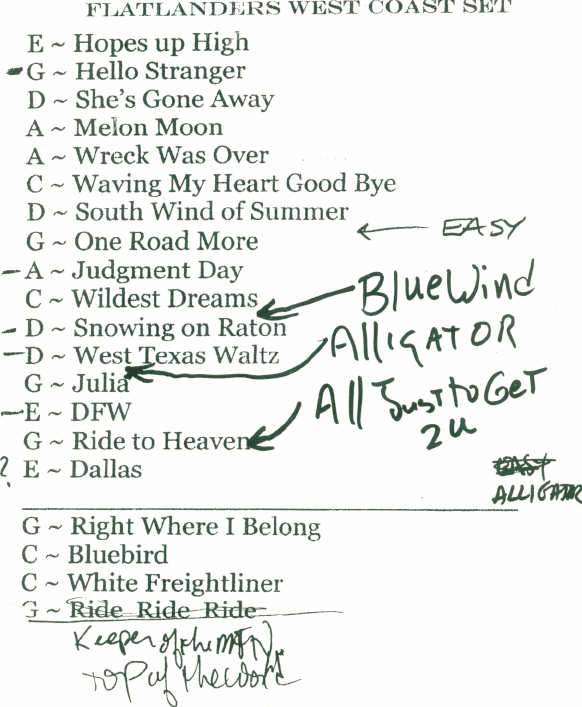 FLATLANDERS WEST COAST SET
E ~ Hopes up High
G ~ Hello Stranger
D ~ She's Gone Away
A ~ Melon Moon
A ~ Wreck Was Over
C ~ Waving My Heart Good Bye
D ~ South Wind of Summer
EASY
G ~ One Road More
A ~ Judgment Day
C ~ Wildest Dreams
BlueWind
D ~ Snowing on Raton
ALLIGATOR
D ~ West Texas Waltz
G ~ Julia
All Just to GeT
2u
E ~ DFW
G ~ Ride to Heaven
? E ~ Dallas
EASY
ALLIGATOR
G ~ Right Where I Belong
C ~ Bluebird
C ~ White Freightliner
G ~ Ride Ride Ride
Keeper of the MTN
top of the world